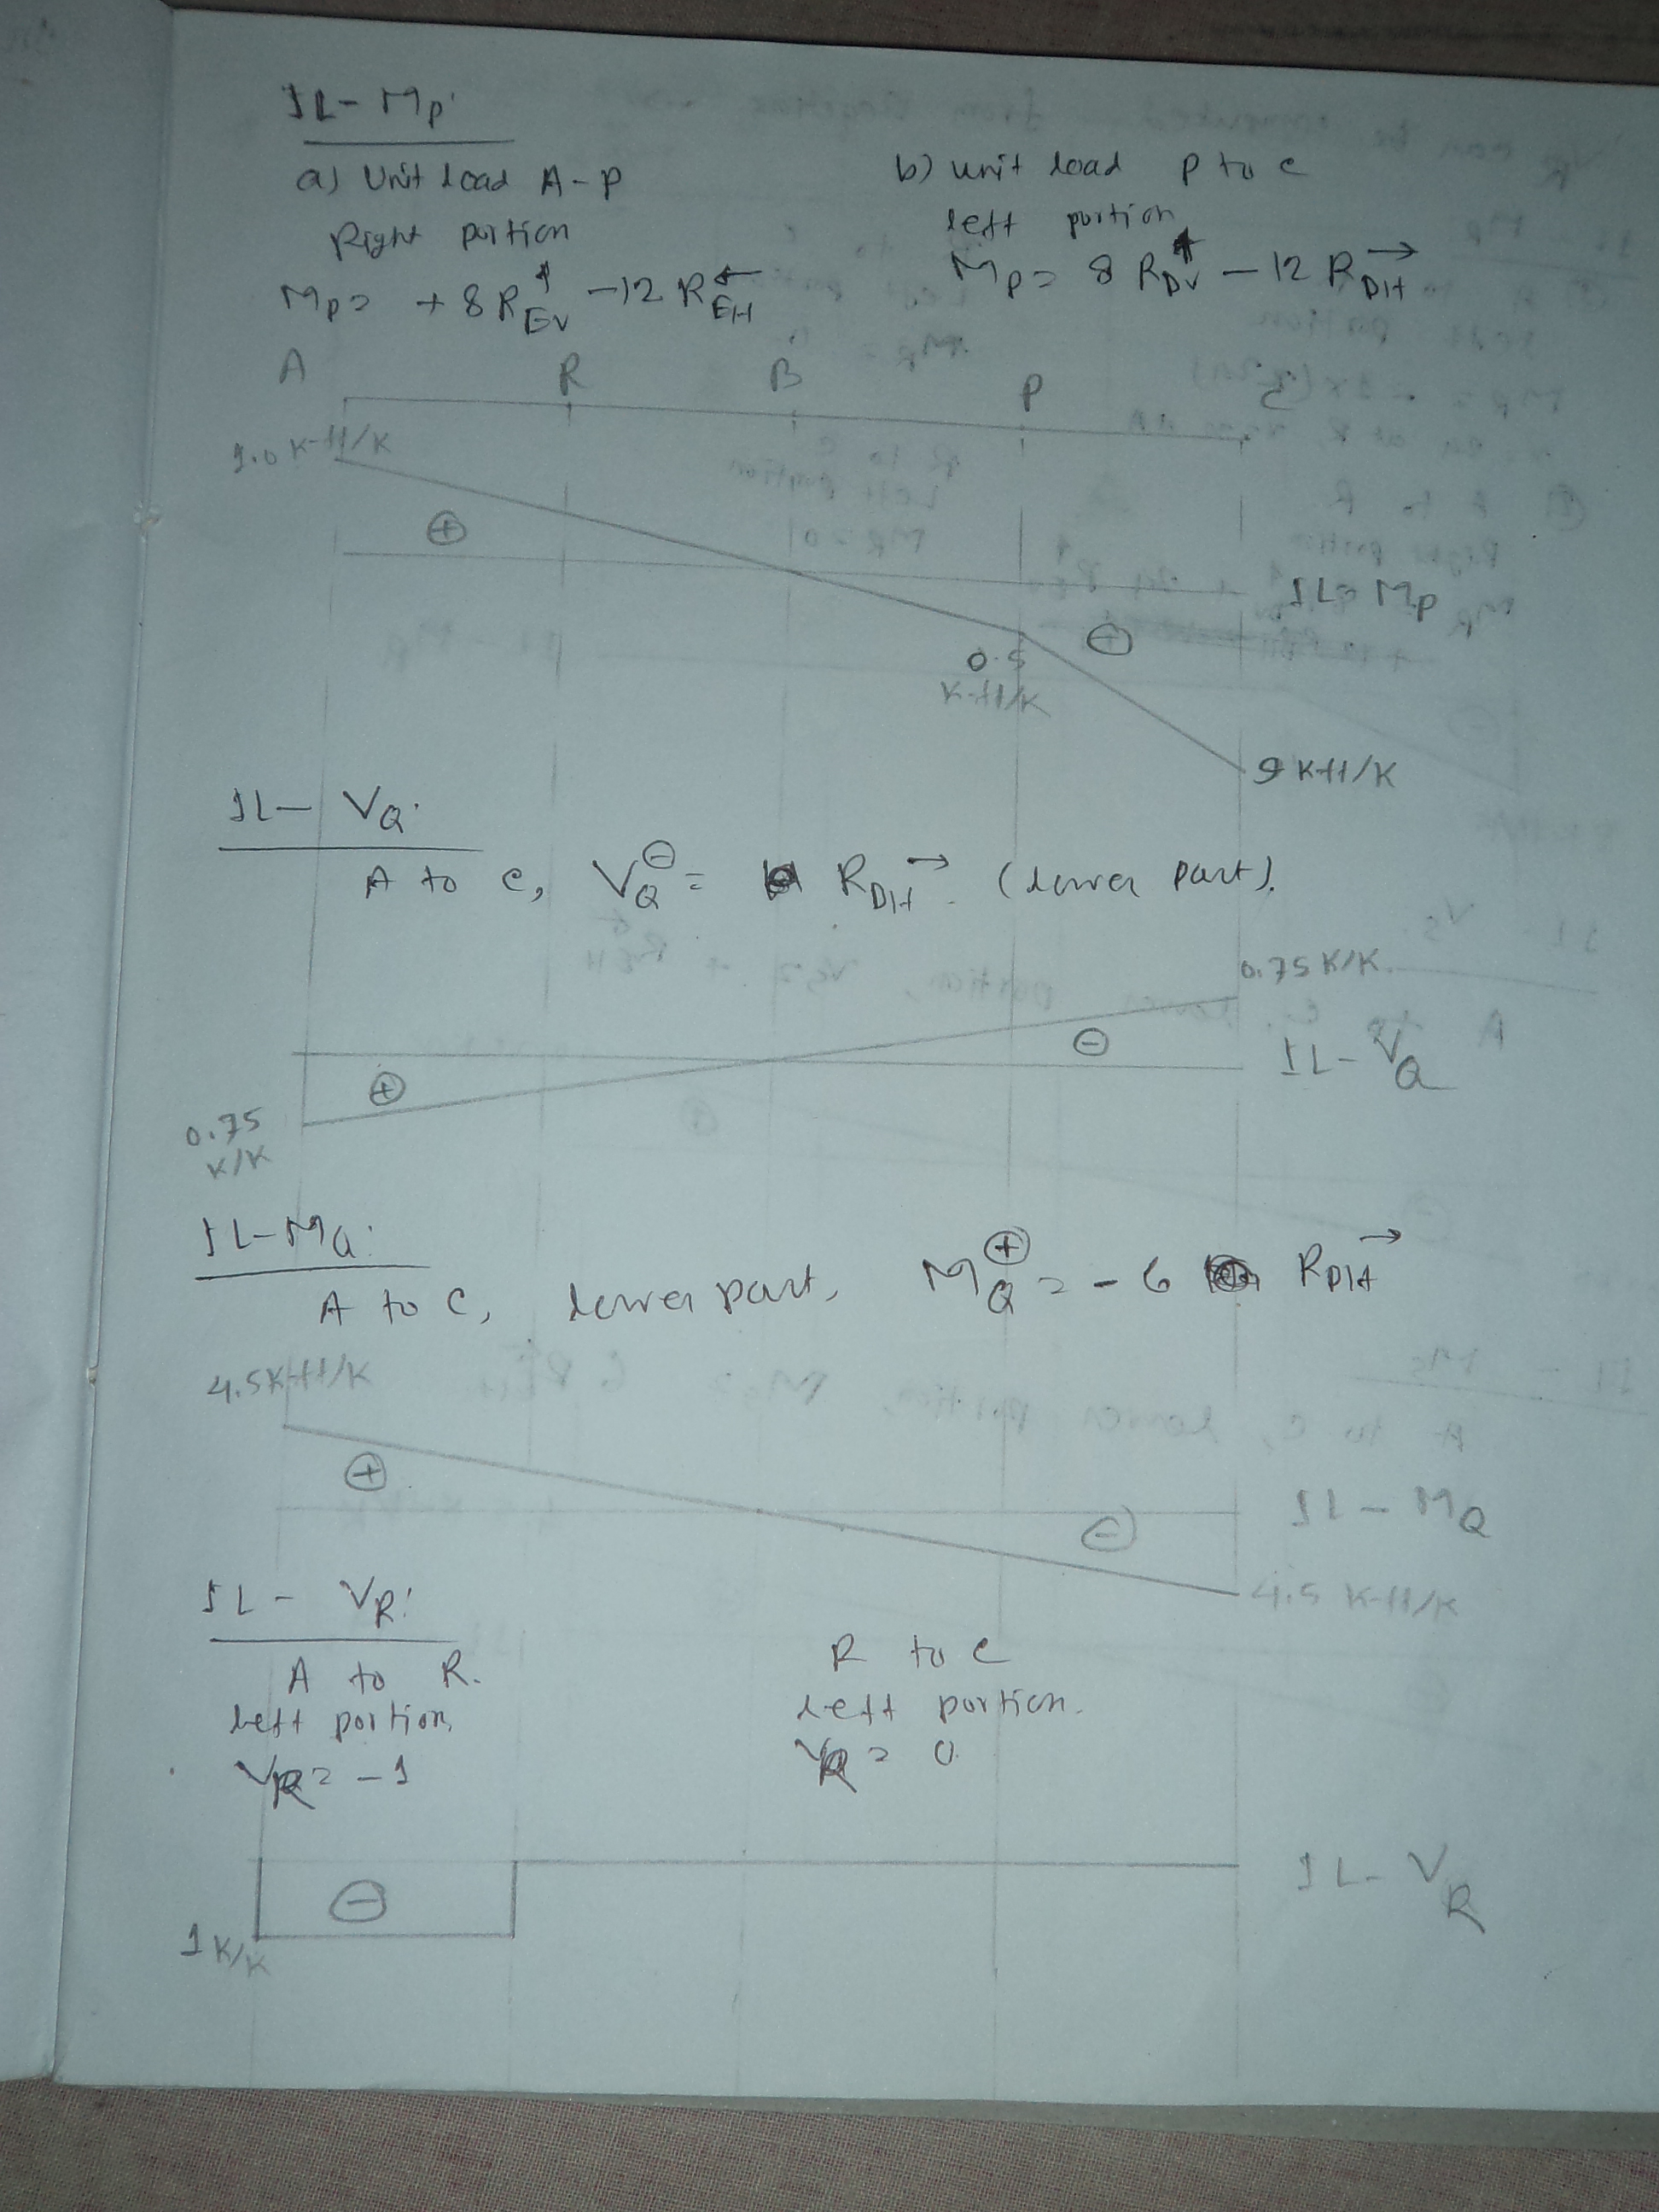 IL- Mp:
a) Unit load A-P
Right portion
Mp= +8 R_EV↑ -12 R_EH←
b) unit load P to C
left portion
Mp= 8 R_DV↑ -12 R_DH→
A R B P C
1.0 K-ft/K
⊕
IL- Mp
0.5
K-ft/K
9 K-ft/K
IL- V_Q:
A to C, V_Q⊖ = R_DH→. (lower part).
0.75 K/K.
⊖
IL- V_Q
⊕
0.75
K/K
IL-M_Q:
A to C, lower part, M_Q⊕ = -6 R_DH→
4.5 K-ft/K
⊕
IL- M_Q
⊖
4.5 K-ft/K
IL- V_R:
A to R.
left portion.
V_R= -1
R to C
left portion.
V_R= 0.
IL- V_R
⊖
1 K/K